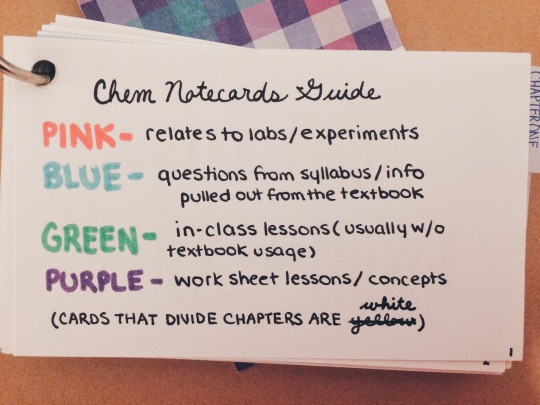 Chem Notecards Guide
PINK- relates to labs/experiments
BLUE- questions from syllabus/info
pulled out from the textbook
GREEN- in-class lessons (usually w/o
textbook usage)
PURPLE- work sheet lessons/concepts
white
(CARDS THAT DIVIDE CHAPTERS ARE yellow)
1
2
CHAPTER ONE